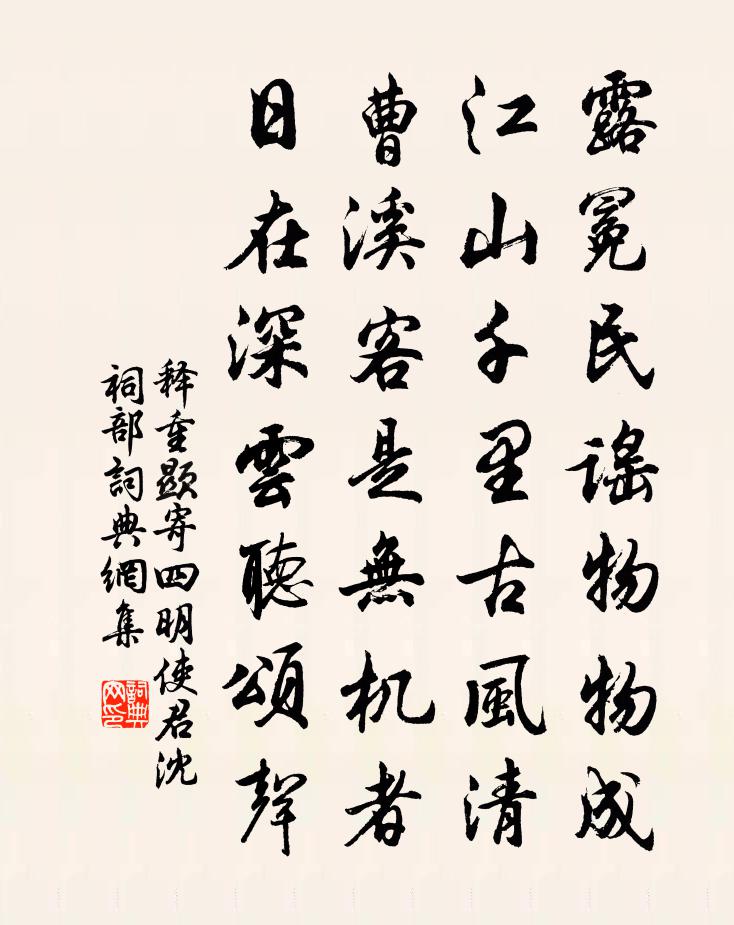 露冕民謠物物成
江山千里古風清
曹溪客是無机者
日在深雲聽頌聲
释重顯寄四明使君沈
祠部詞典網集
詞典网印